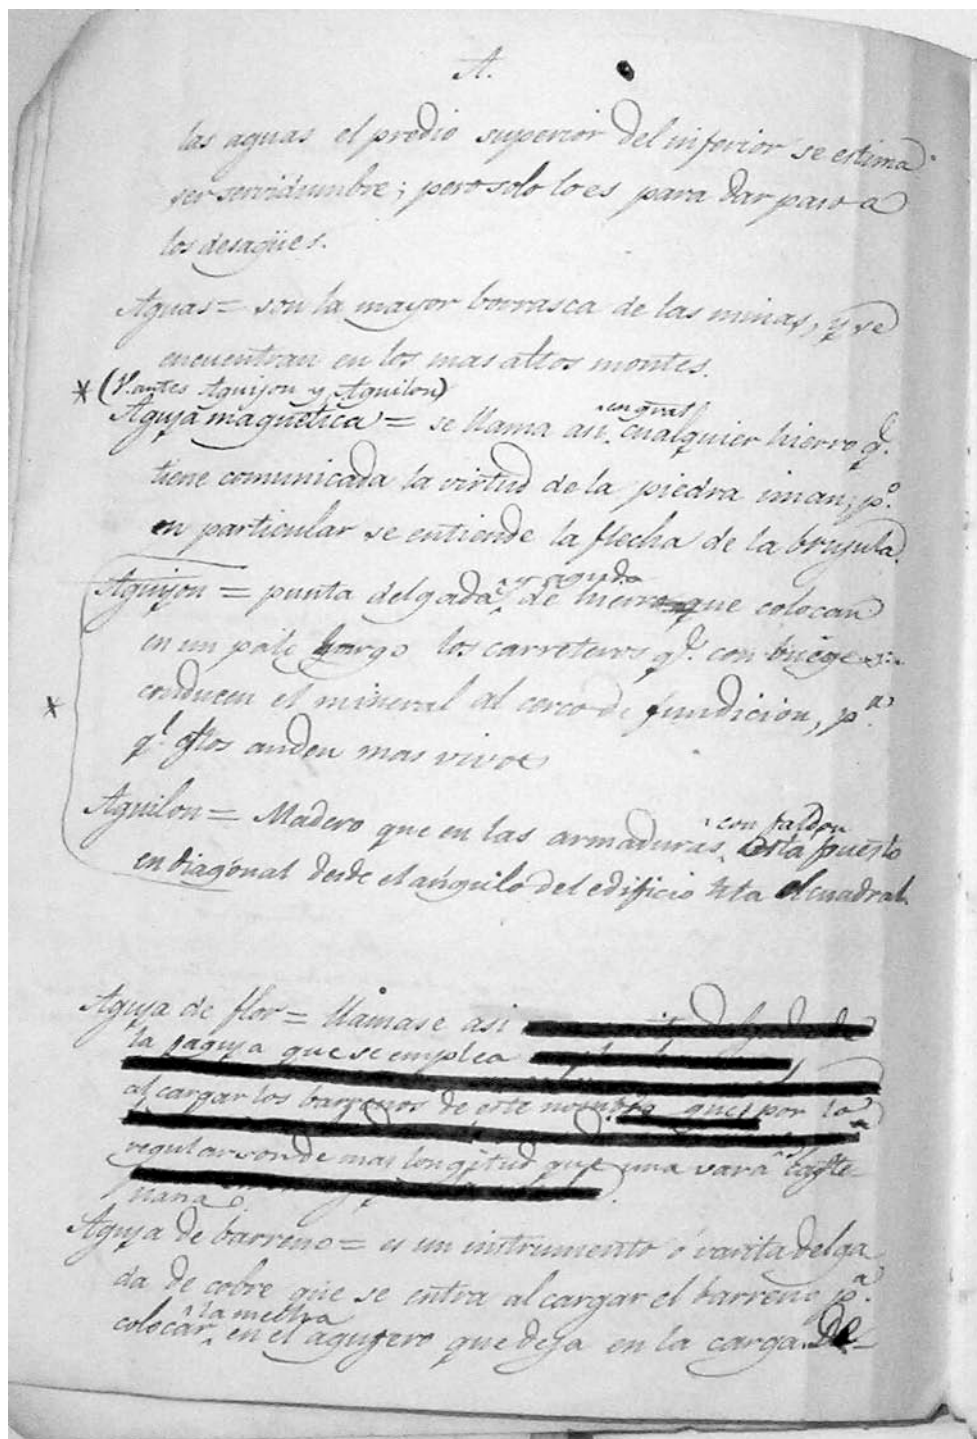 A.
las aguas el predio superior del inferior se estima
ser servidumbre; pero solo lo es para dar paso a
los desagües.
Aguas = son la mayor borrasca de las minas, y se
encuentran en los mas altos montes.
* (V. antes Aguijon y Aguilon)
en gral
Aguja magnetica = se llama asi cualquier hierro q.e
tiene comunicada la virtud de la piedra iman; p.o
en particular se entiende la flecha de la brujula.
y aguda
Aguijon = punta delgada, de hierro que colocan
en un palo largo los carreteros q.e con bueyes
* conducen el mineral al cerco de fundicion, p.a
q.e estos anden mas vivos
con faldon
Aguilon = Madero que en las armaduras está puesto
en diagonal desde el angulo del edificio hta el cuadral.
Aguja de flor = llámase asi
la aguja que se emplea
al cargar los barrenos de este nombre que por lo
regular son de mas longitud que una vara caste-
llana
Aguja de barreno = es un instrumento ó varita delga
da de cobre que se entra al cargar el barreno p.a
la mecha
colocar en el agujero que deja en la carga. De-